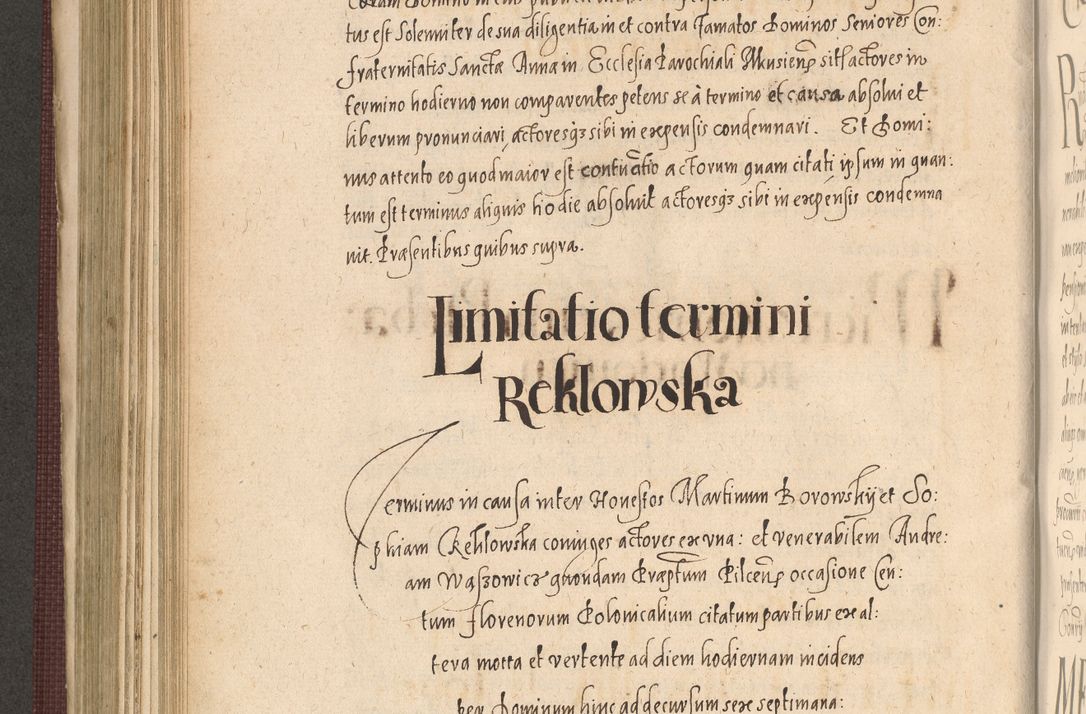 tus est Solenniter de sua diligentia in et contra famatos Dominos Seniores Con:
fraternitatis Sanctæ Annæ in Ecclesia Parochiali Ilkusien sitt actores in
termino hodierno non comparentes petens se à termino et causa absolui et
liberum pronunciari actoresq3 sibi in expensis condemnari. Et Domi:
nus attento eo quod maior est contuatio actorum quam citati ipsum in quan:
tum est terminus aliquis hodie absoluit actoresq3 sibi in expensis condemna
uit. Præsentibus quibus supra.
Limitatio termini
Reklowska
Terminus in causa inter Honestos Martinum Borowskij et So:
phiam Reklowska coniuges actores ex vna: et venerabilem Andre:
am Waszowicz quondam Præptum Pilcen occasione Cen:
tum florenorum Polonicalium citatum partibus ex al:
tera mota et vertente ad diem hodiernam incidens
per Dominum hinc ad decursum sex septimana: